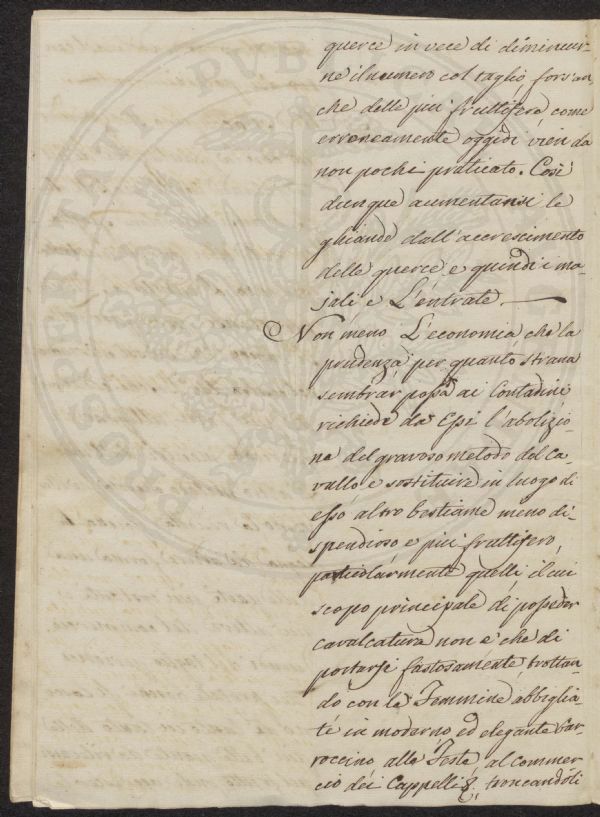 querce in vece di diminuir-
ne il numero col taglio fors'an-
che delle più fruttifere come
erroneamente oggidì vien da
non pochi praticato. Così
dunque aumentansi le
ghiande dall'accrescimento
delle querce e quindi i ma-
jali e L'entrate.
Non meno L'economia che la
prudenza per quanto strana
sembrar possa ai Contadini
richiede da Essi l'abolizio-
ne del gravoso metodo del Ca-
vallo e sostituire in luogo di
esso altro bestiame meno di-
spendioso e più fruttifero,
particolarmente quelli il cui
scopo principale di posseder
cavalcatura non è che di
portarsi fastosamente trottan-
do con le Femmine abbiglia-
te in moderno ed elegante bar-
roccino alle Feste, al commer-
cio dei Cappelli &. troncandoli